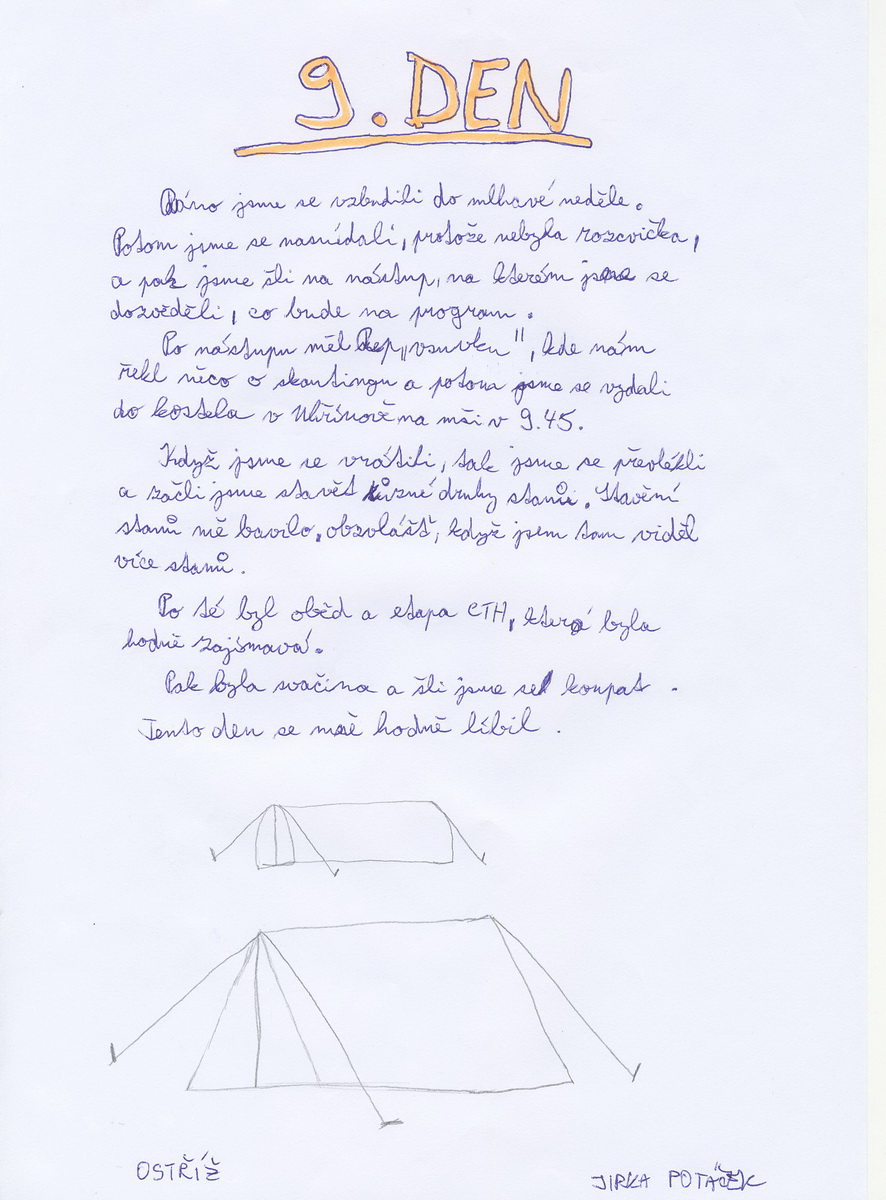 9. DEN
Ráno jsme se vzbudili do mlhavé neděle.
Potom jsme se nasnídali, protože nebyla rozcvička,
a pak jsme šli na nástup, na kterém jsme se
dozvěděli, co bude na program.
Po nástupu měl Pep „vsuvku", kde nám
řekl něco o skautingu a potom jsme se vydali
do kostela v Uhřínově na mši v 9.45.
Když jsme se vrátili, tak jsme se převlékli
a začli jsme stavět různé druhy stanů. Stavění
stanů mě bavilo, obzvlášť, když jsem tam viděl
více stanů.
Po té byl oběd a etapa CTH, která byla
hodně zajímavá.
Pak byla svačina a šli jsme se koupat.
Tento den se mě hodně líbil.
OSTŘÍŽ
JIRKA POTÁČEK